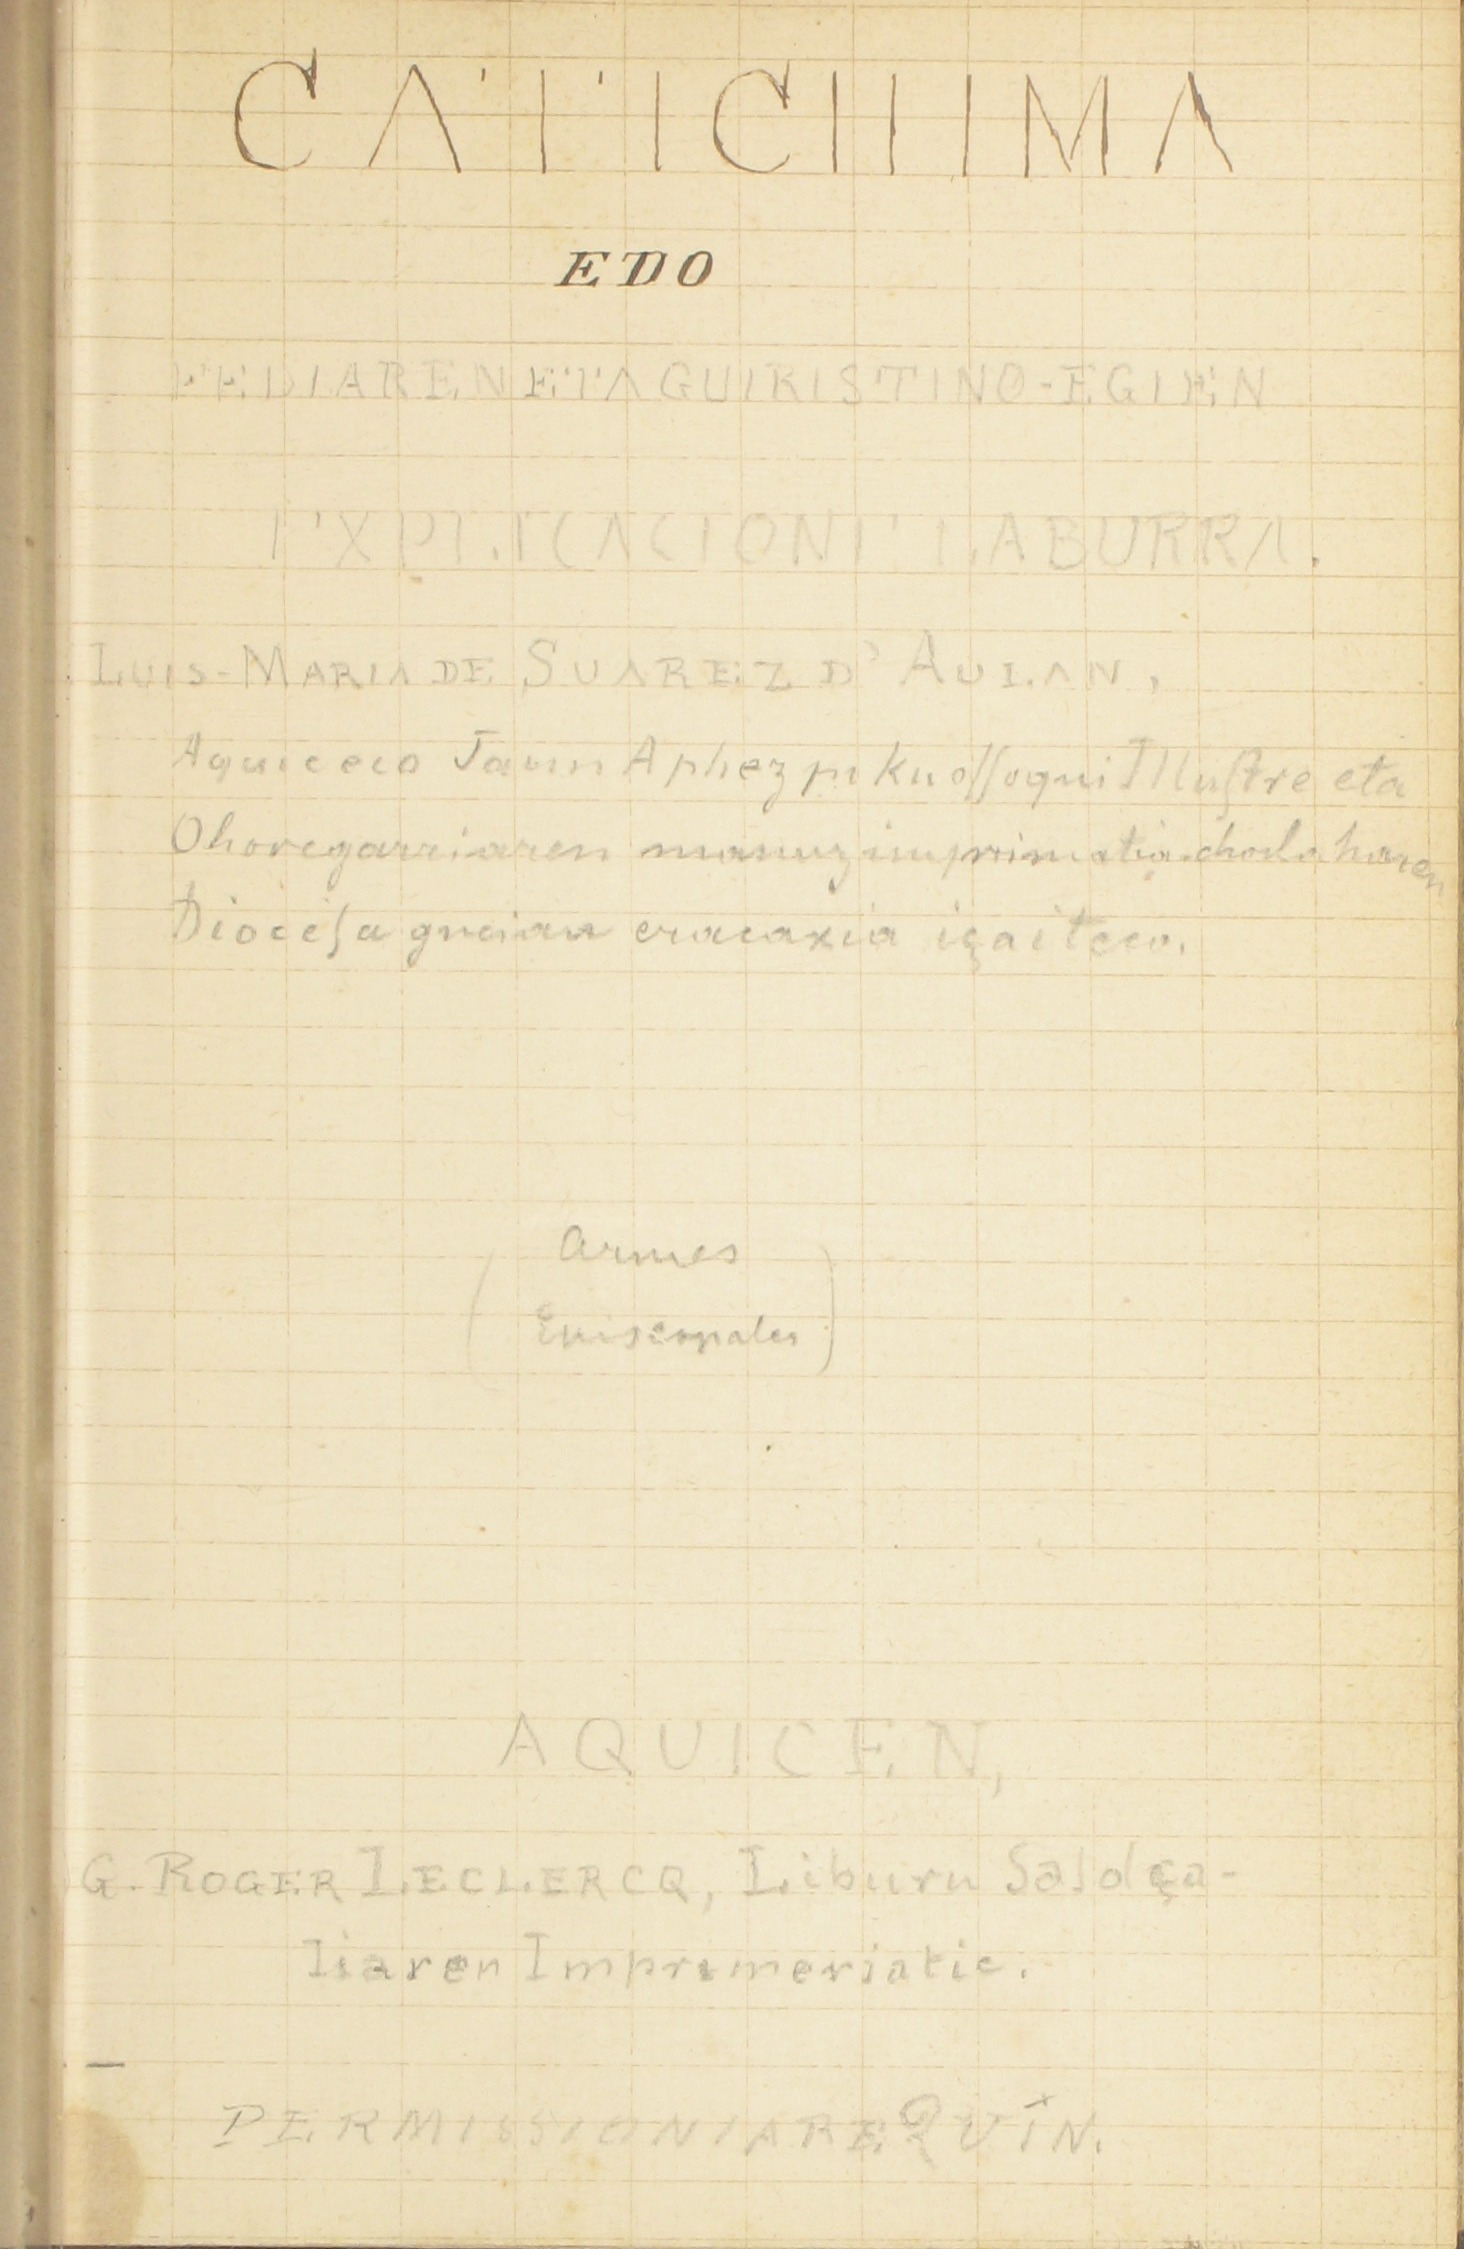 CATICHIMA
EDO
FEDIAREN ETA GUIRISTINO-EGIEN
EXPLICACIONE LABURRA.
LUIS-MARIA DE SUAREZ D'AULAN,
Aquiceco Jaun Aphezpiku oſſoqui Illuſtre eta
Ohoregarriaren manuz imprimatia. hola haren
Diociſa gucian eracaxia içaiteco.
(Armes
Episcopales)
AQUICEN,
G. ROGER LECLERCQ, Liburu Saldça-
liaren Imprimeriatic.
PERMISSIONIAREQUIN.